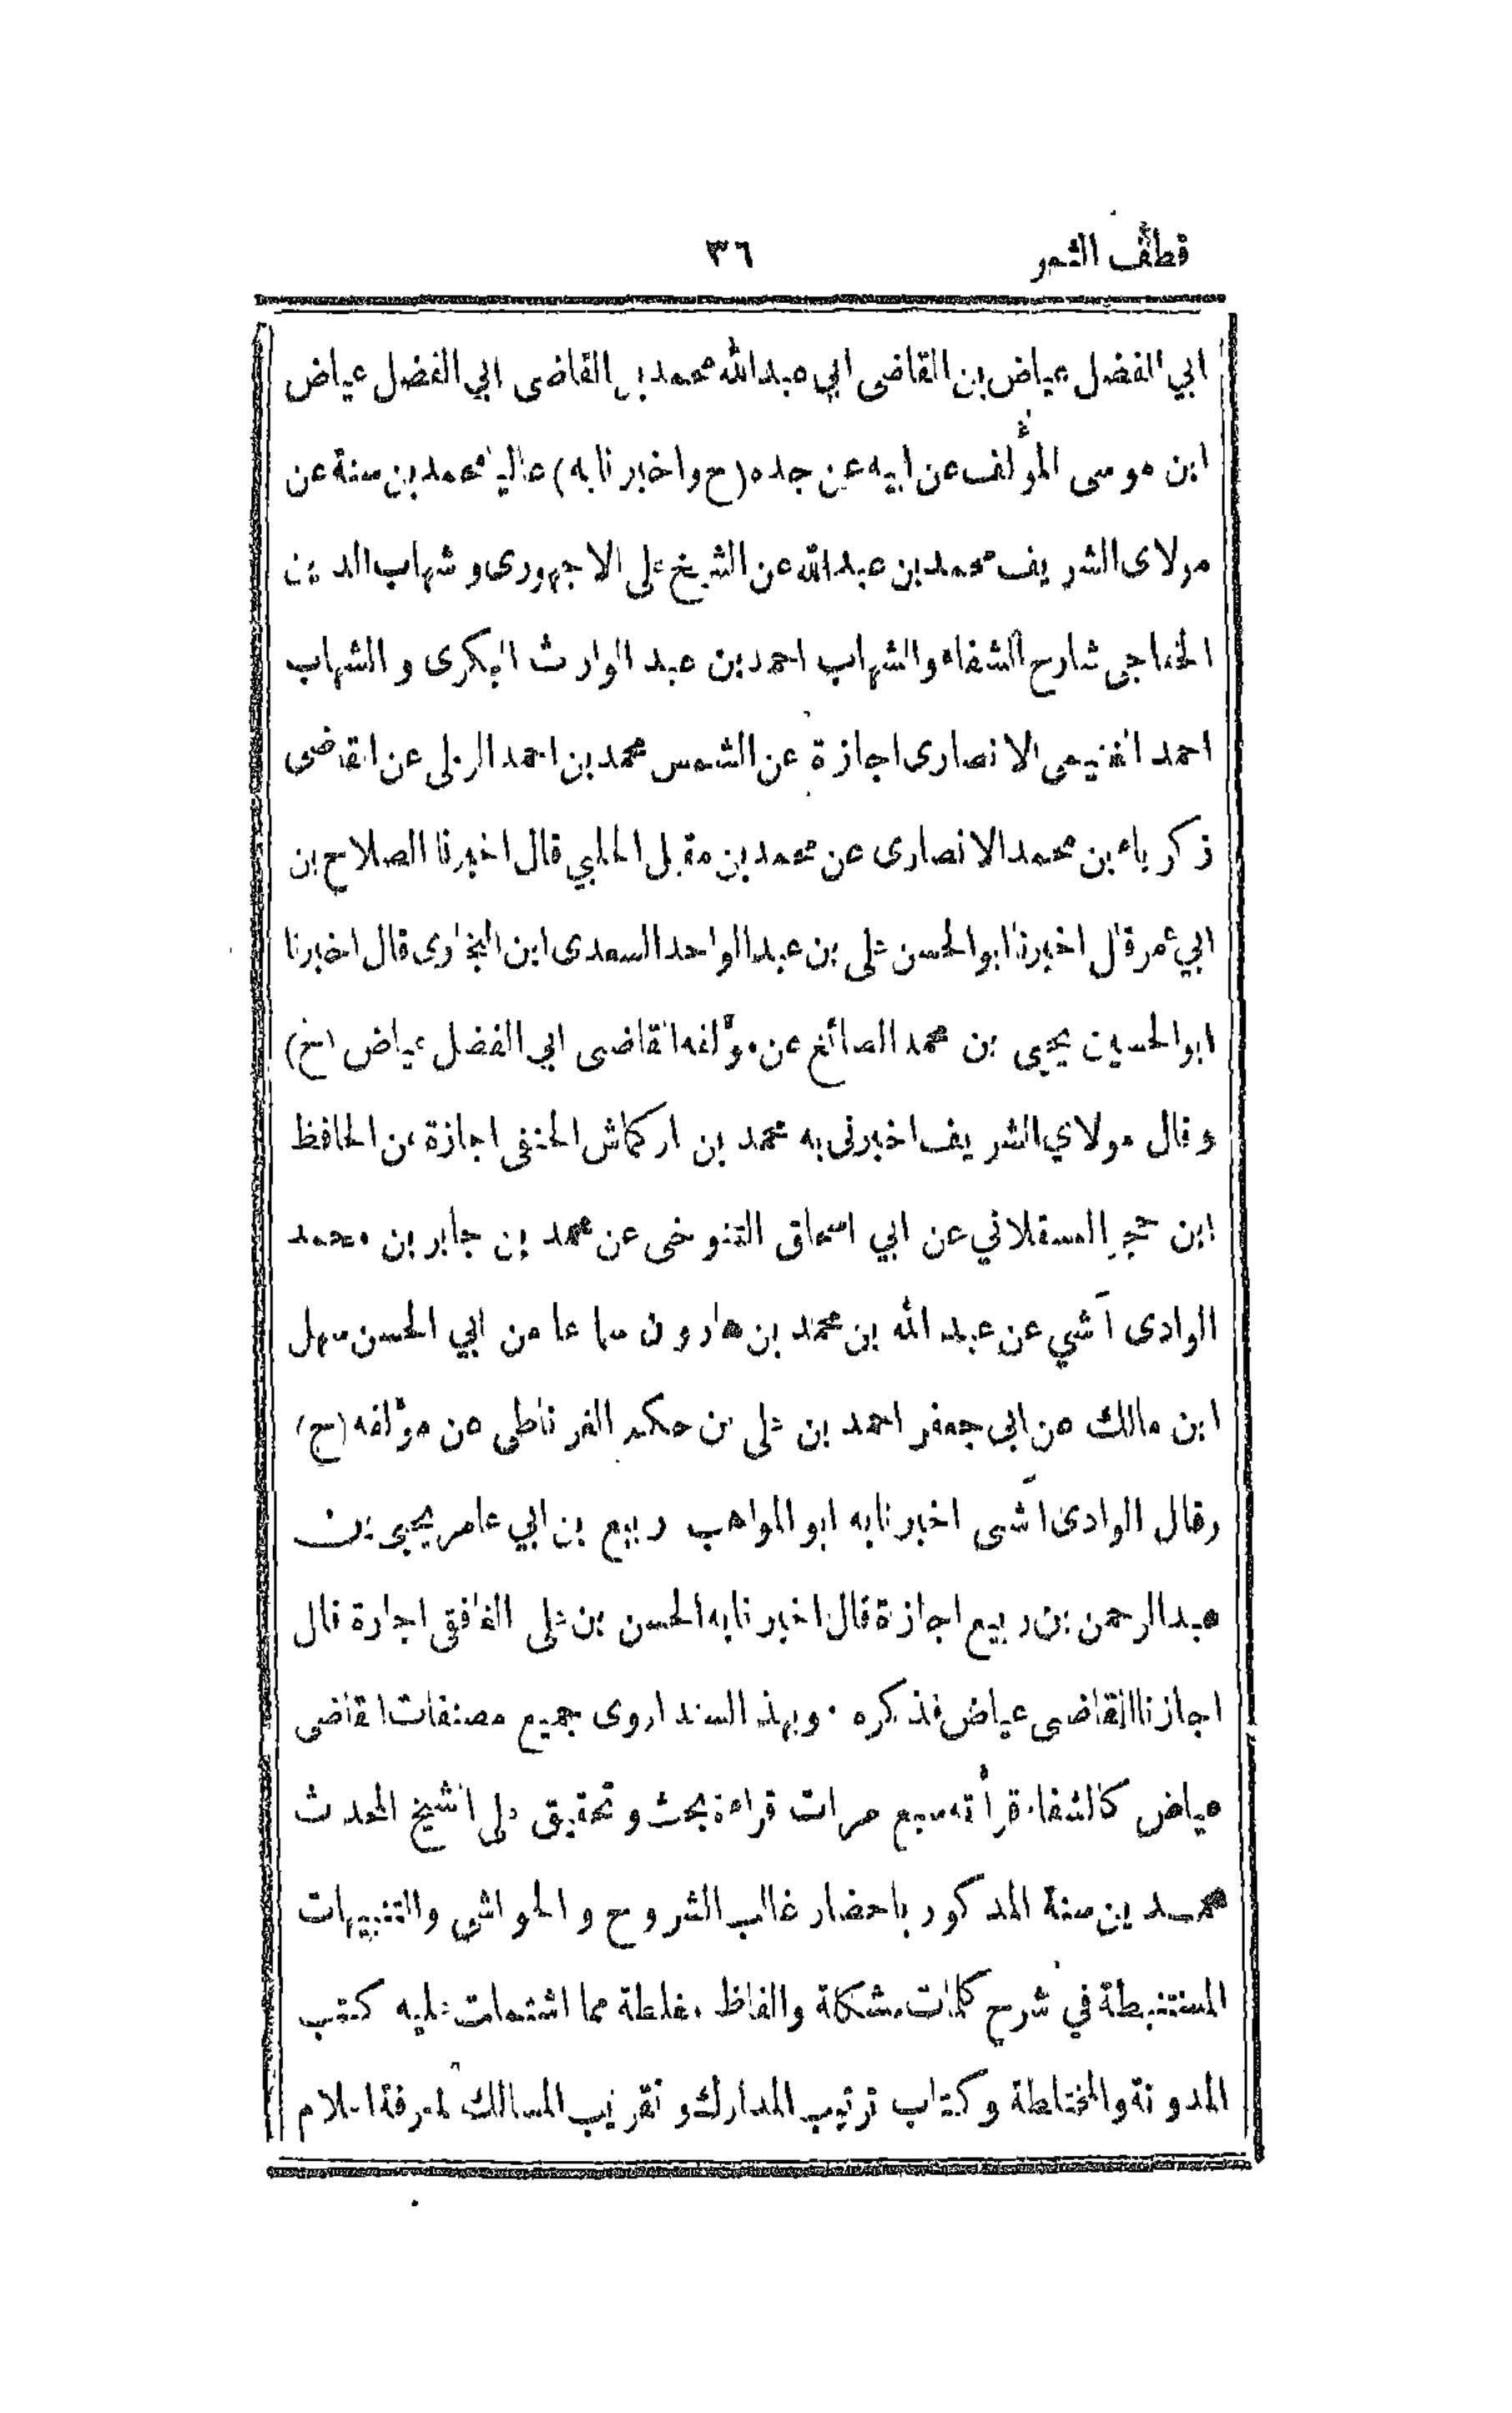 قطف الثمر
٣٦
ابي الفضل عياض بن القاضى ابي عبدالله محمد بن القاضى ابي الفضل عياض
ابن موسى المؤلف عن ابيه عن جده (ح واخبرنا به) عاليا محمد بن سنة عن
مولاى الشريف محمد بن عبدالله عن الشيخ على الاجهورى وشهاب الدين
الخفاجى شارح الشفاء والشهاب احمد بن عبد الوارث البكرى والشهاب
احمد الغنيمى الانصارى اجازة عن الشمس محمد بن احمد الرملى عن القاضى
زكرياء بن محمد الانصارى عن محمد بن مقبل الحلبي قال اخبرنا الصلاح بن
ابي عمر قال اخبرنا ابوالحسن على بن عبدالواحد السعدى ابن البخارى قال اخبرنا
ابوالحسين يحيى بن محمد الصائغ عن مؤلفه القاضى ابي الفضل عياض (خ)
وقال مولاي الشريف اخبرنى به محمد بن اركماش الحنفى اجازة عن الحافظ
ابن حجر العسقلاني عن ابي اسحاق التنوخى عن محمد بن جابر بن محمد
الوادى آشي عن عبد الله بن محمد بن هارون سماعا من ابي الحسن سهل
ابن مالك عن ابى جعفر احمد بن على بن حكم الغرناطى عن مؤلفه (ح)
وقال الوادى آشى اخبرنا به ابو المواهب ربيع بن ابي عامر يحيى بن
عبدالرحمن بن ربيع اجازة قال اخبرنا به الحسن بن على الغافقى اجازة قال
اجازنا القاضى عياض فذكره . وبهذ السند اروى جميع مصنفات القاضى
عياض كالشفاء قرأته سبع مرات قراءة بحث وتحقيق على الشيخ المحدث
محمد بن سنة المذكور باحضار غالب الشروح والحواشى والتنبيهات
المستنبطة في شرح كلمات مشكلة والفاظ مغلطة مما اشتملت عليه كتب
المدونة والمختلطة وكتاب ترتيب المدارك وتقريب المسالك لمعرفة اعلام